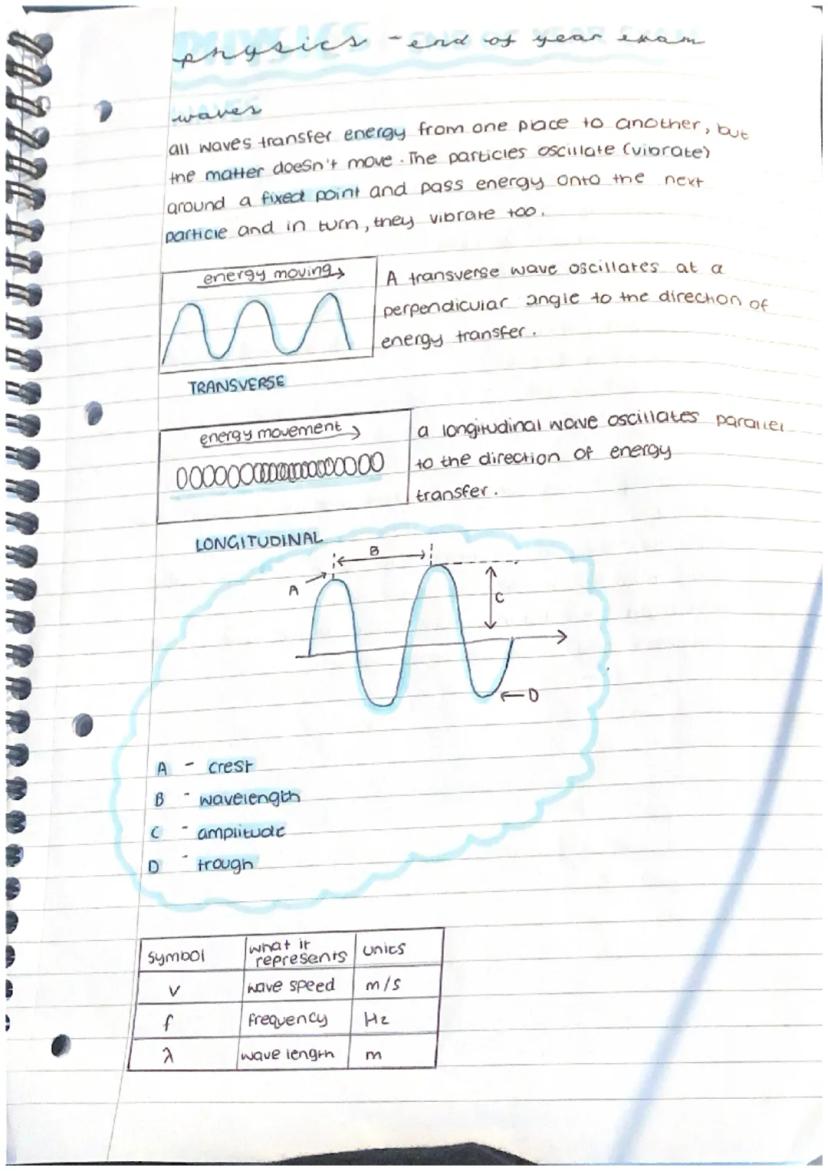 physics - end of year exam
waves
all waves transfer energy from one place to another, but
the matter doesn't move. The particles oscillate (vibrate)
around a fixed point and pass energy onto the next
particle and in turn, they vibrate too.
energy moving
A transverse wave oscillates at a
perpendicular angle to the direction of
energy transfer.
TRANSVERSE
energy movement
a longitudinal wave oscillates parallel
to the direction of energy
transfer.
LONGITUDINAL
B
A
C
D
A - crest
B - wavelength
C - amplitude
D - trough
symbol what it represents units
v wave speed m/s
f frequency Hz
λ wave length m